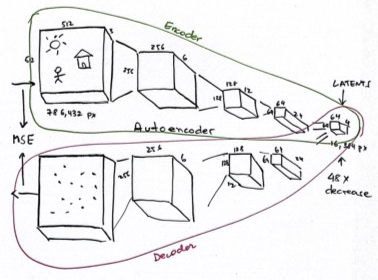 Encoder
512
3
512
786,432 px
256
6
256
128
12
128
64
24
64
LATENTS
64
4
64
16,384 px
48x
decrease
Autoencoder
MSE
256
6
256
128
128
12
64
64
24
Decoder